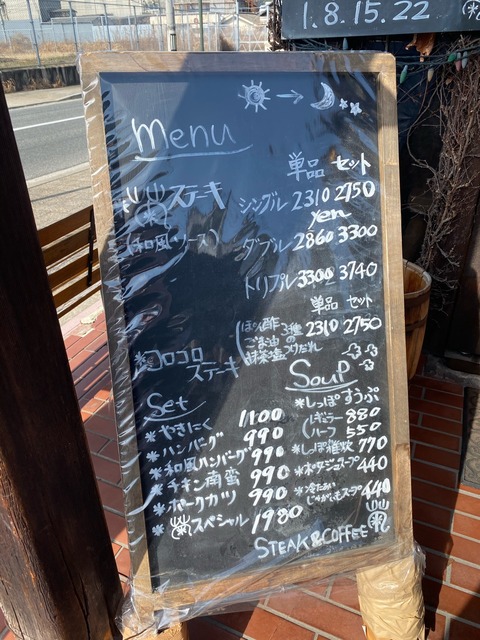 1.8.15.22
Menu
単品 セット
ステーキ シングル 2310 2750
yen
(和風ソース) ダブル 2860 3300
トリプル 3300 3740
単品 セット
コロコロステーキ
(ぽん酢 ごま油 抹茶塩 3種のつけだれ 2310 2750
Set
*やきにく 1100
*ハンバーグ 990
*和風ハンバーグ 990
*チキン南蛮 990
*ポークカツ 990
*スペシャル 1980
Soup
*しっぽすうぷ
(レギュラー 880
ハーフ 550
*しっぽ雑炊 770
*ポタージュスープ 440
*冷たいじゃがいもスープ 440
STEAK&COFFEE